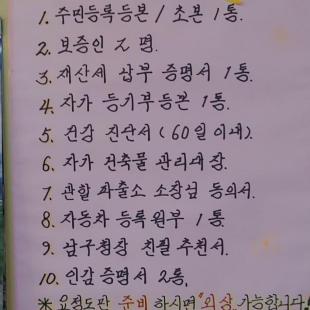 1. 주민등록등본 / 초본 1통.
2. 보증인 2 명.
3. 재산세 납부 증명서 1통.
4. 자가 등기부등본 1통.
5. 건강 진산서 (60일이내).
6. 자가 건축물 관리대장.
7. 관할 파출소 소장님 동의서.
8. 자동차 등록원부 1통
9. 남구청장 친필 추천서.
10. 인감 증명서 2통.
※ 요정도만 준비하시면 "외상 가능합니다